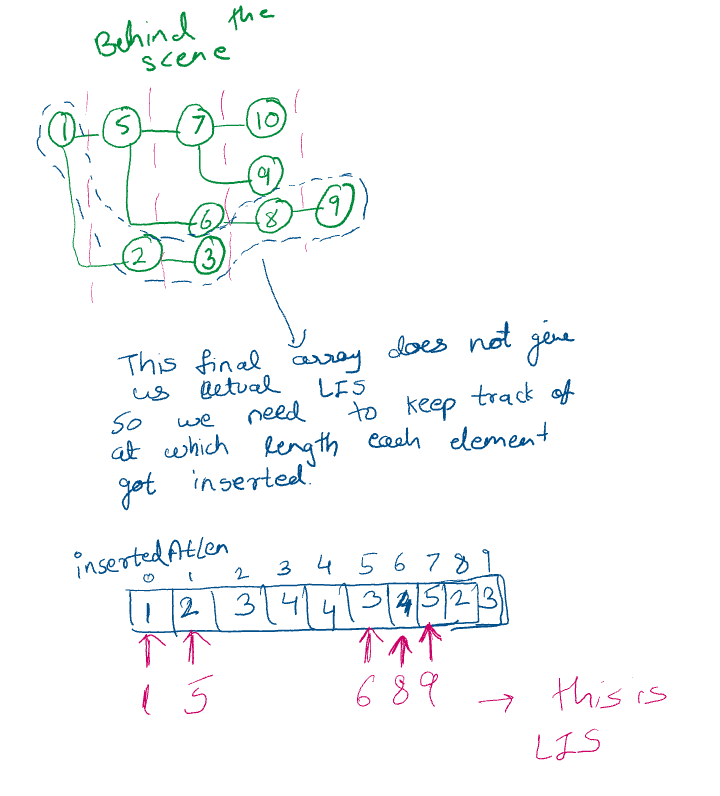 Behind the
scene
1 5 7 10
9
6 8 9
2 3
This final array does not give
us actual LIS
So we need to keep track of
at which length each element
got inserted.
insertedAtLen
0 1 2 3 4 5 6 7 8 9
1 2 3 4 4 3 4 5 2 3
1 5 6 8 9 → this is
LIS